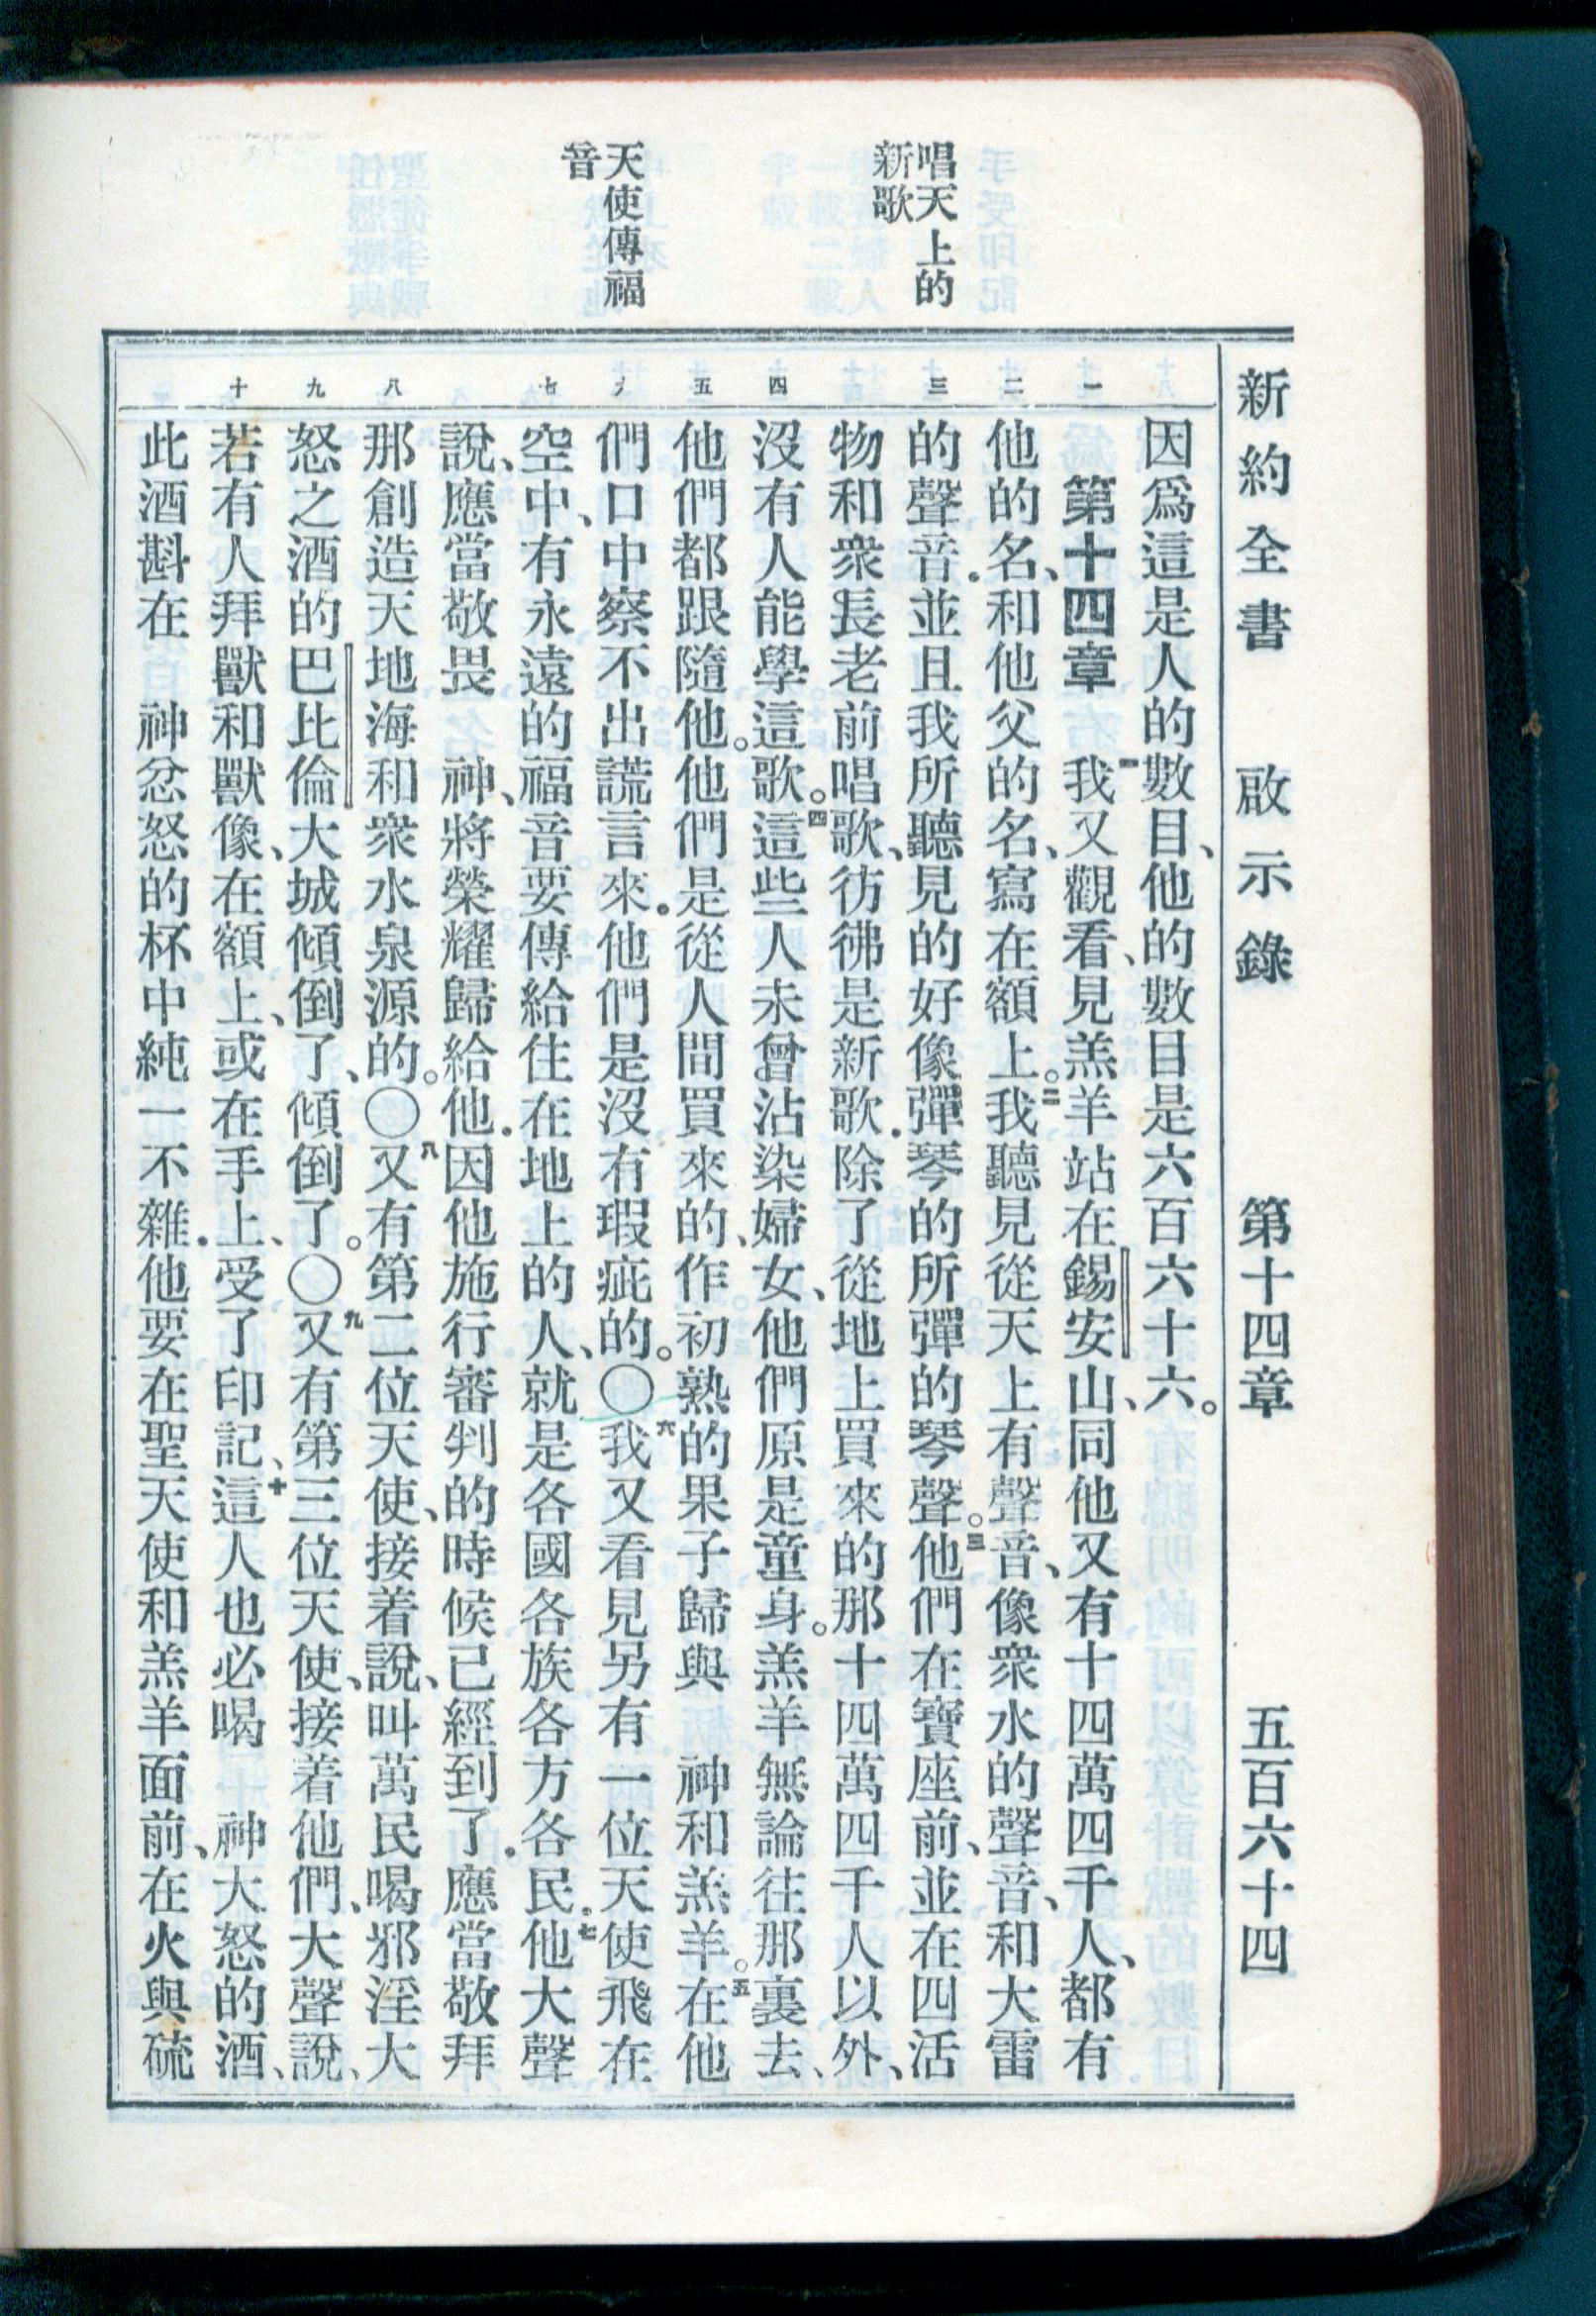 新約全書 啟示錄 第十四章 五百六十四
唱天上的
新歌
天使傳福
音
一 二 三 四 五 六 七 八 九 十
因爲這是人的數目、他的數目是六百六十六。
第十四章 一我又觀看、見羔羊站在錫安山、同他又有十四萬四千人、都有
他的名、和他父的名、寫在額上。二我聽見從天上有聲音、像衆水的聲音、和大雷
的聲音．並且我所聽見的好像彈琴的所彈的琴聲。三他們在寶座前、並在四活
物和衆長老前唱歌、彷彿是新歌．除了從地上買來的那十四萬四千人以外、
沒有人能學這歌。四這些人未曾沾染婦女、他們原是童身。羔羊無論往那裏去、
他們都跟隨他。他們是從人間買來的、作初熟的果子歸與 神和羔羊。五在他
們口中察不出謊言來．他們是沒有瑕疵的。〇六我又看見另有一位天使飛在
空中、有永遠的福音要傳給住在地上的人、就是各國各族各方各民．七他大聲
說、應當敬畏 神、將榮耀歸給他．因他施行審判的時候已經到了．應當敬拜
那創造天地海和衆水泉源的。〇八又有第二位天使、接着說、叫萬民喝邪淫大
怒之酒的巴比倫大城傾倒了、傾倒了。〇九又有第三位天使、接着他們、大聲說、
若有人拜獸和獸像、在額上、或在手上、受了印記、十這人也必喝 神大怒的酒、
此酒斟在 神忿怒的杯中純一不雜．他要在聖天使和羔羊面前、在火與硫